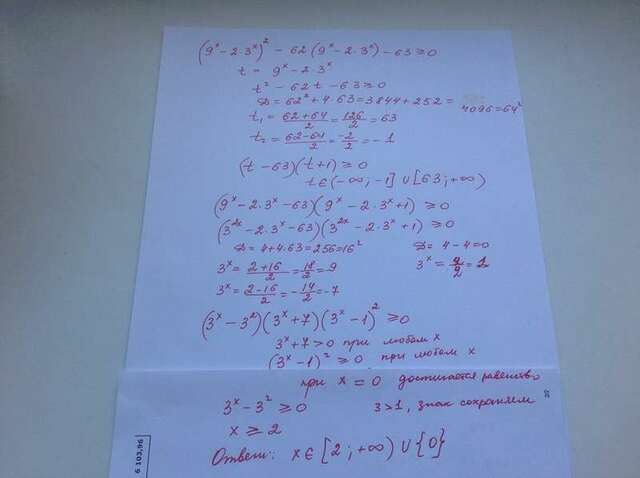 (9ˣ - 2·3ˣ)² - 62(9ˣ - 2·3ˣ) - 63 ≥ 0
t = 9ˣ - 2·3ˣ
t² - 62t - 63 ≥ 0
D = 62² + 4·63 = 3844 + 252 = 4096 = 64²
t₁ = (62+64)/2 = 126/2 = 63
t₂ = (62-64)/2 = -2/2 = -1
(t - 63)(t + 1) ≥ 0
t ∈ (-∞; -1] ∪ [63; +∞)
(9ˣ - 2·3ˣ - 63)(9ˣ - 2·3ˣ + 1) ≥ 0
(3²ˣ - 2·3ˣ - 63)(3²ˣ - 2·3ˣ + 1) ≥ 0
D = 4 + 4·63 = 256 = 16² D = 4 - 4 = 0
3ˣ = (2+16)/2 = 18/2 = 9 3ˣ = 2/2 = 1
3ˣ = (2-16)/2 = -14/2 = -7
(3ˣ - 3²)(3ˣ + 7)(3ˣ - 1)² ≥ 0
3ˣ + 7 > 0 при любом x
(3ˣ - 1)² ≥ 0 при любом x
при x = 0 достигается равенство
3ˣ - 3² ≥ 0 3 > 1, знак сохраняем
x ≥ 2
Ответ: x ∈ [2; +∞) ∪ {0}
6 103,96